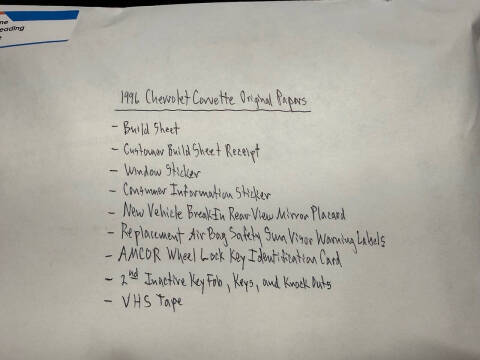 me
eading
1996 Chevrolet Corvette Original Papers
- Build Sheet
- Customer Build Sheet Receipt
- Window Sticker
- Consumer Information Sticker
- New Vehicle Break In Rear View Mirror Placard
- Replacement Air Bag Safety Sun Visor Warning Labels
- AMCOR Wheel Lock Key Identification Card
- 2nd Inactive Key Fob, Keys, and Knock Outs
- VHS Tape